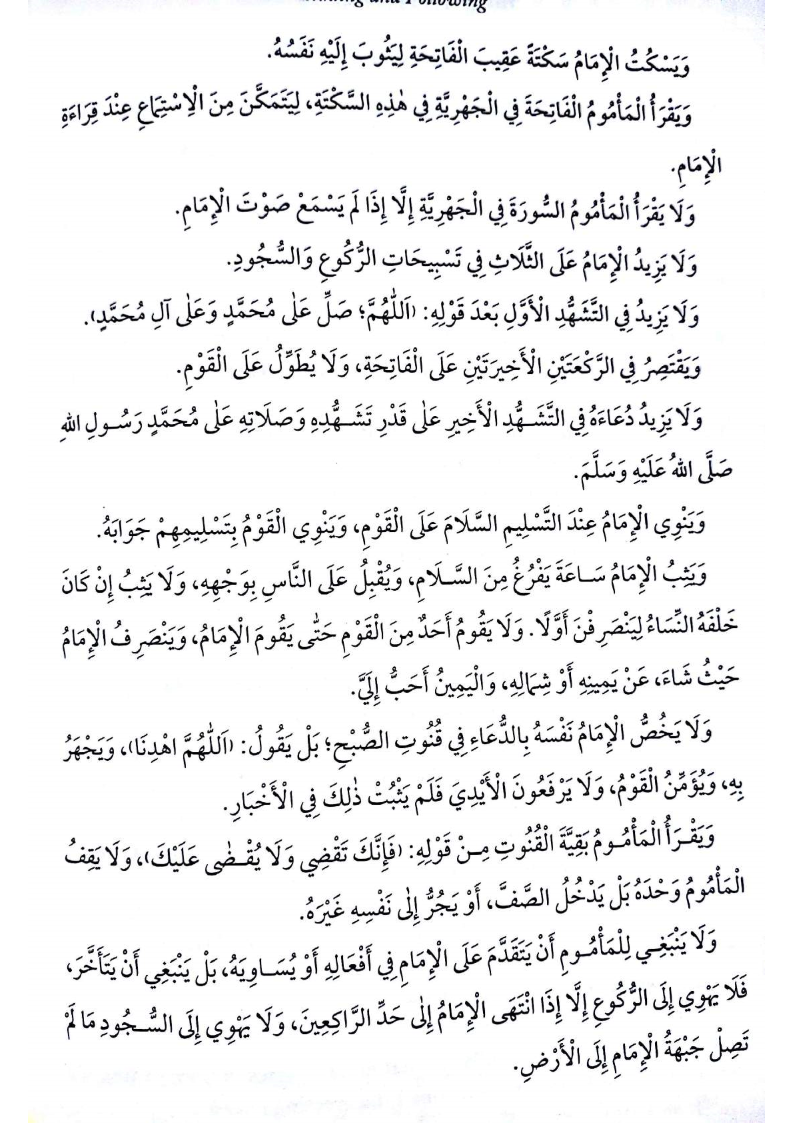 and Following
وَيَسْكُتُ الْإِمَامُ سَكْتَةً عَقِيبَ الْفَاتِحَةِ لِيَثُوبَ إِلَيْهِ نَفَسُهُ.
وَيَقْرَأُ الْمَأْمُومُ الْفَاتِحَةَ فِي الْجَهْرِيَّةِ فِي هٰذِهِ السَّكْتَةِ، لِيَتَمَكَّنَ مِنَ الْاِسْتِمَاعِ عِنْدَ قِرَاءَةِ
الْإِمَامِ.
وَلَا يَقْرَأُ الْمَأْمُومُ السُّورَةَ فِي الْجَهْرِيَّةِ إِلَّا إِذَا لَمْ يَسْمَعْ صَوْتَ الْإِمَامِ.
وَلَا يَزِيدُ الْإِمَامُ عَلَى الثَّلَاثِ فِي تَسْبِيحَاتِ الرُّكُوعِ وَالسُّجُودِ.
وَلَا يَزِيدُ فِي التَّشَهُّدِ الْأَوَّلِ بَعْدَ قَوْلِهِ: (اَللّٰهُمَّ؛ صَلِّ عَلٰى مُحَمَّدٍ وَعَلٰى آلِ مُحَمَّدٍ).
وَيَقْتَصِرُ فِي الرَّكْعَتَيْنِ الْأَخِيرَتَيْنِ عَلَى الْفَاتِحَةِ، وَلَا يُطَوِّلُ عَلَى الْقَوْمِ.
وَلَا يَزِيدُ دُعَاءَهُ فِي التَّشَهُّدِ الْأَخِيرِ عَلٰى قَدْرِ تَشَهُّدِهِ وَصَلَاتِهِ عَلٰى مُحَمَّدٍ رَسُولِ اللهِ
صَلَّى اللهُ عَلَيْهِ وَسَلَّمَ.
وَيَنْوِي الْإِمَامُ عِنْدَ التَّسْلِيمِ السَّلَامَ عَلَى الْقَوْمِ، وَيَنْوِي الْقَوْمُ بِتَسْلِيمِهِمْ جَوَابَهُ.
وَيَثِبُ الْإِمَامُ سَاعَةَ يَفْرُغُ مِنَ السَّلَامِ، وَيُقْبِلُ عَلَى النَّاسِ بِوَجْهِهِ، وَلَا يَثِبُ إِنْ كَانَ
خَلْفَهُ النِّسَاءُ لِيَنْصَرِفْنَ أَوَّلًا. وَلَا يَقُومُ أَحَدٌ مِنَ الْقَوْمِ حَتّٰى يَقُومَ الْإِمَامُ، وَيَنْصَرِفُ الْإِمَامُ
حَيْثُ شَاءَ، عَنْ يَمِينِهِ أَوْ شِمَالِهِ، وَالْيَمِينُ أَحَبُّ إِلَيَّ.
وَلَا يَخُصُّ الْإِمَامُ نَفْسَهُ بِالدُّعَاءِ فِي قُنُوتِ الصُّبْحِ؛ بَلْ يَقُولُ: (اَللّٰهُمَّ اهْدِنَا)، وَيَجْهَرُ
بِهِ، وَيُؤَمِّنُ الْقَوْمُ، وَلَا يَرْفَعُونَ الْأَيْدِيَ فَلَمْ يَثْبُتْ ذٰلِكَ فِي الْأَخْبَارِ.
وَيَقْرَأُ الْمَأْمُومُ بَقِيَّةَ الْقُنُوتِ مِنْ قَوْلِهِ: (فَإِنَّكَ تَقْضِي وَلَا يُقْضٰى عَلَيْكَ)، وَلَا يَقِفُ
الْمَأْمُومُ وَحْدَهُ بَلْ يَدْخُلُ الصَّفَّ، أَوْ يَجُرُّ إِلٰى نَفْسِهِ غَيْرَهُ.
وَلَا يَنْبَغِي لِلْمَأْمُومِ أَنْ يَتَقَدَّمَ عَلَى الْإِمَامِ فِي أَفْعَالِهِ أَوْ يُسَاوِيَهُ، بَلْ يَنْبَغِي أَنْ يَتَأَخَّرَ،
فَلَا يَهْوِي إِلَى الرُّكُوعِ إِلَّا إِذَا انْتَهَى الْإِمَامُ إِلٰى حَدِّ الرَّاكِعِينَ، وَلَا يَهْوِي إِلَى السُّجُودِ مَا لَمْ
تَصِلْ جَبْهَةُ الْإِمَامِ إِلَى الْأَرْضِ.